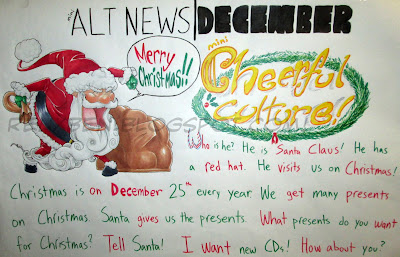 mini ALT NEWS DECEMBER
Merry Christmas!!
mini
Cheerful
Culture!!
Who is he? He is Santa Claus! He has
a red hat. He visits us on Christmas!
Christmas is on December 25th every year. We get many presents
on Christmas. Santa gives us the presents. What presents do you want
for Christmas? Tell Santa! I want new CDs! How about you?